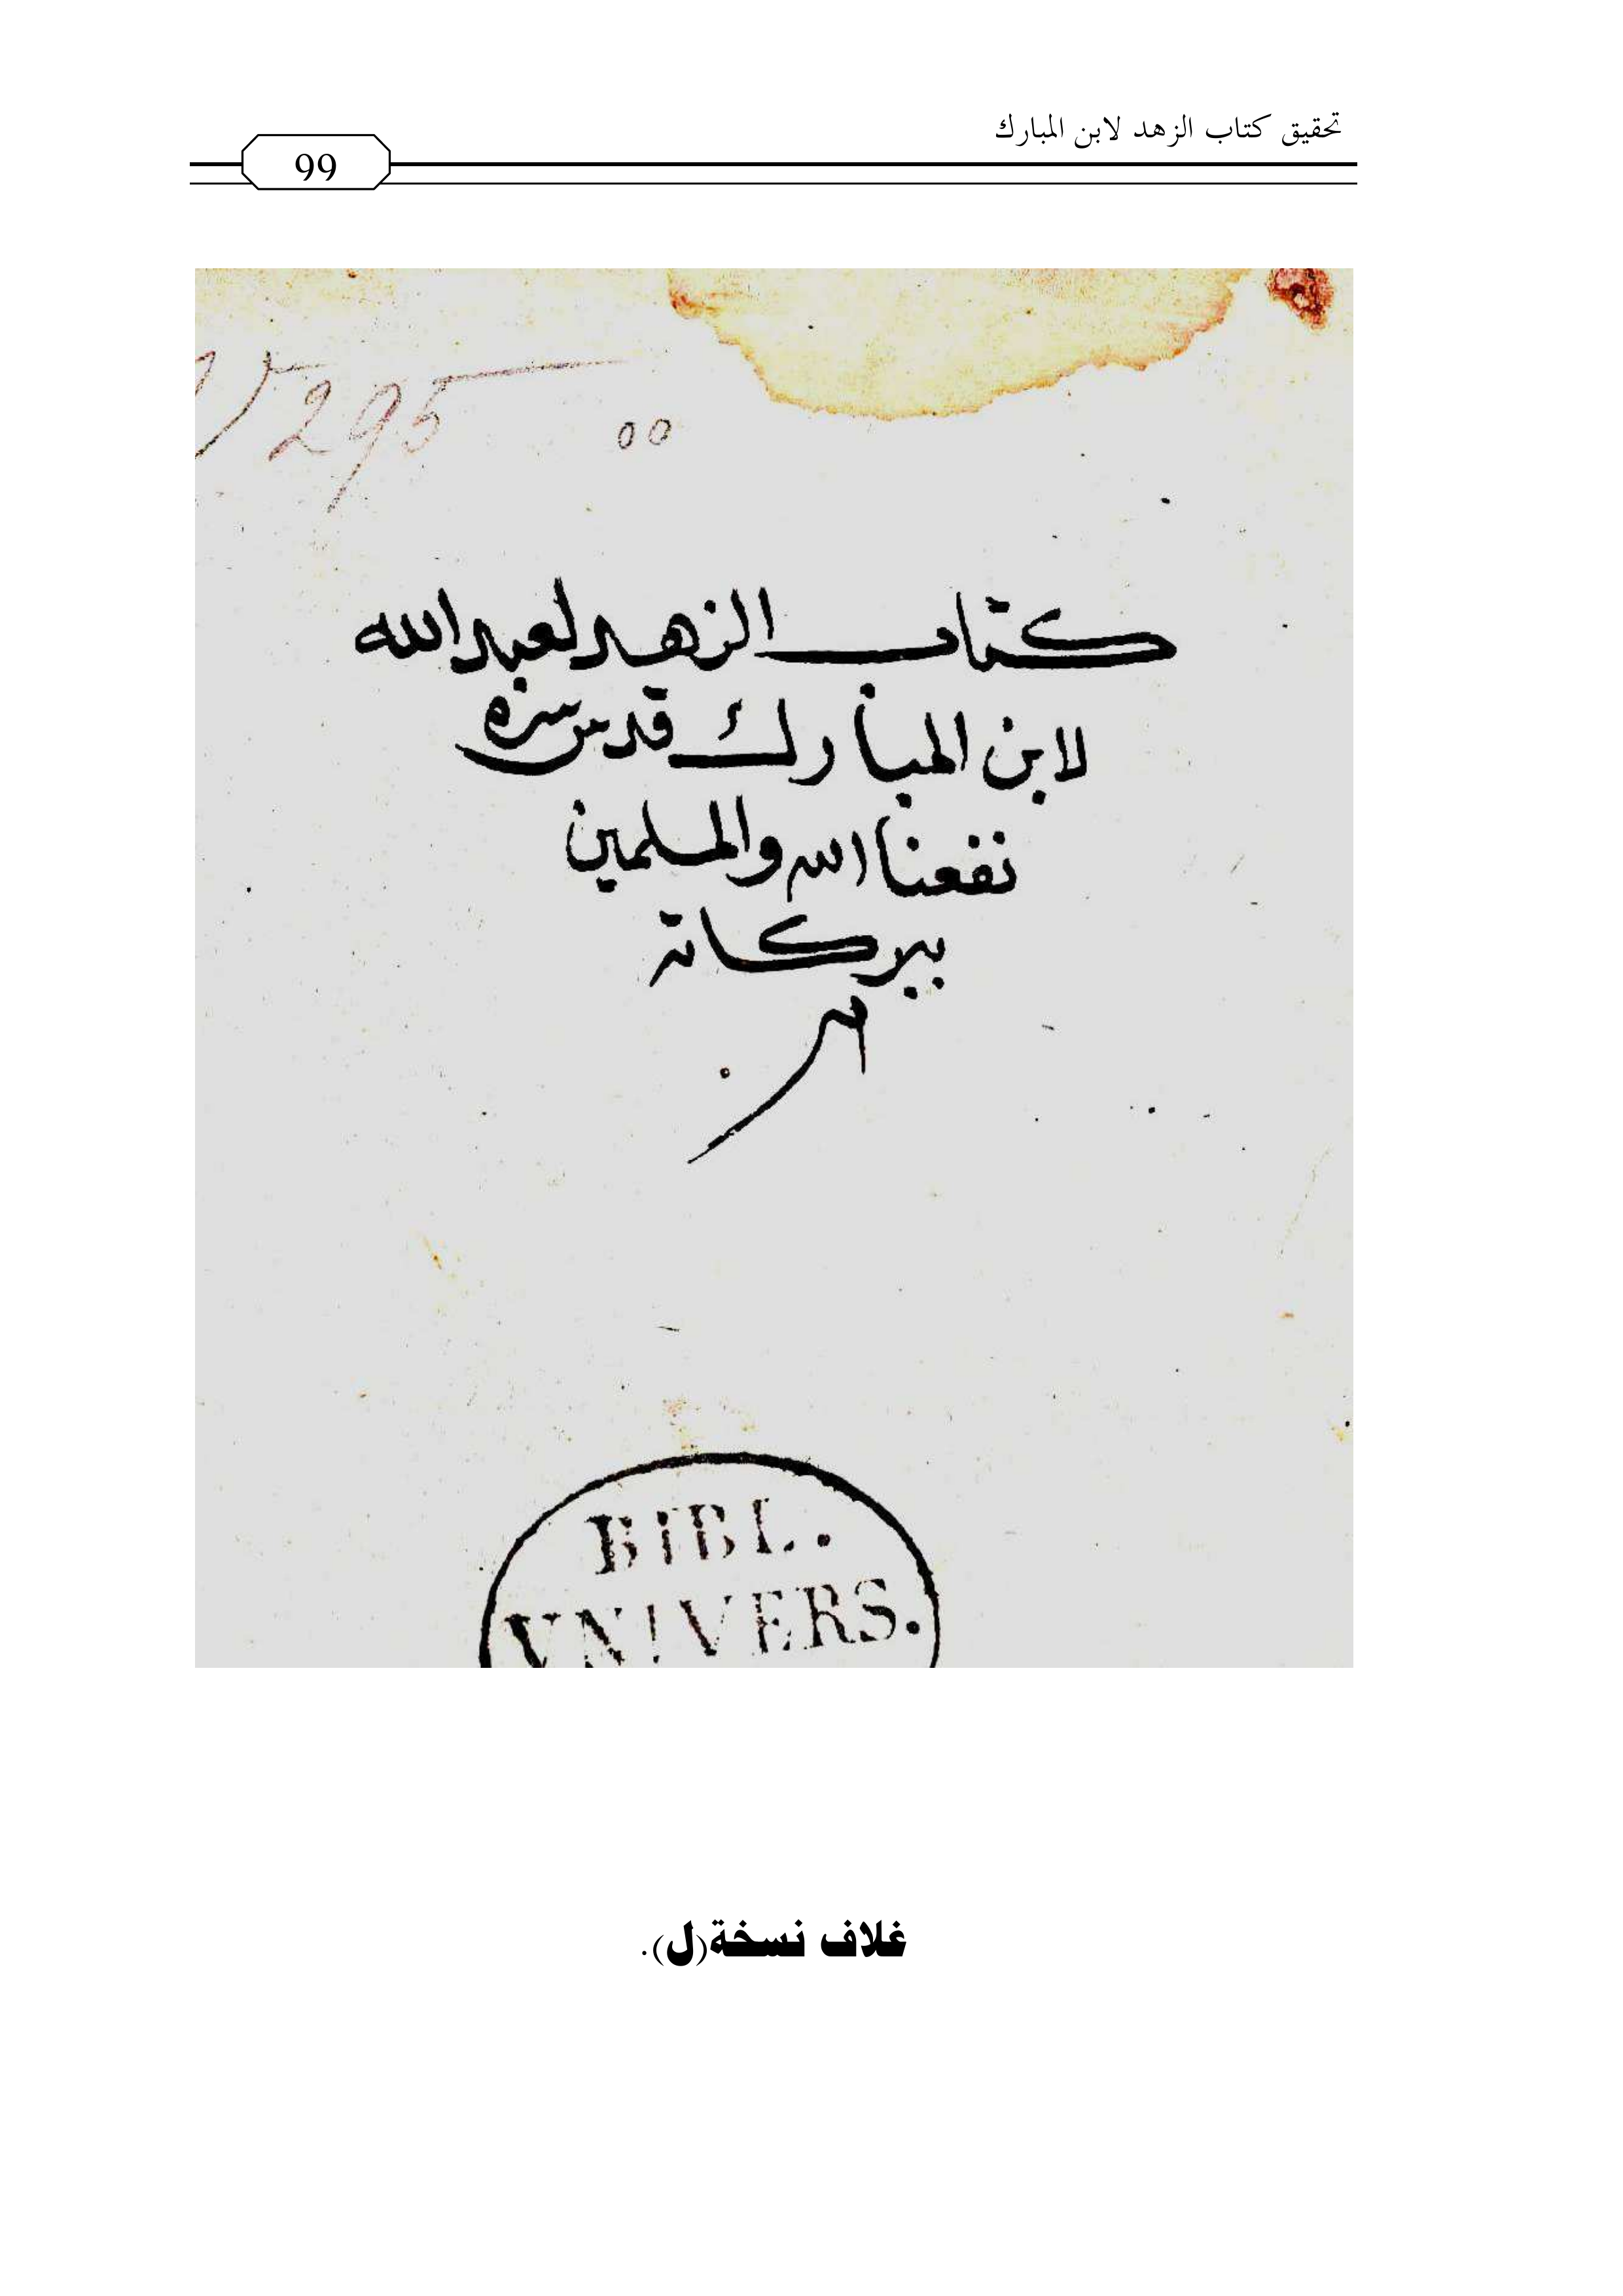 تحقيق كتاب الزهد لابن المبارك
99
295
كتاب الزهد لعبد الله
لابن المبارك قدس سره
نفعنا الله والمسلمين
ببركاته
BIBL.
VNIVERS.
غلاف نسخة(ل).